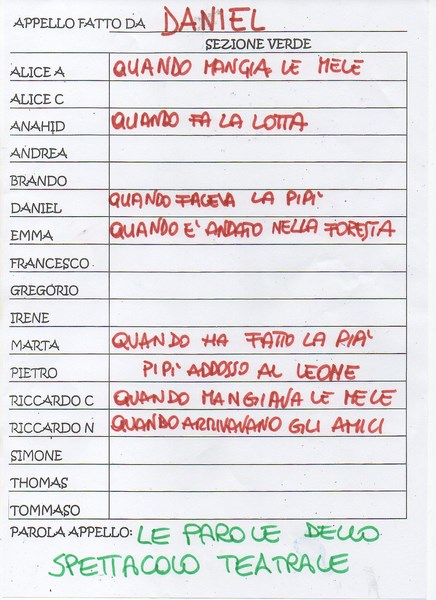 APPELLO FATTO DA DANIEL
SEZIONE VERDE
ALICE A QUANDO MANGIA LE MELE
ALICE C
ANAHID QUANDO FA LA LOTTA
ANDREA
BRANDO
DANIEL QUANDO FACEVA LA PIPI'
EMMA QUANDO E' ANDATO NELLA FORESTA
FRANCESCO
GREGORIO
IRENE
MARTA QUANDO HA FATTO LA PIPI'
PIETRO PIPI' ADDOSSO AL LEONE
RICCARDO C QUANDO MANGIAVA LE MELE
RICCARDO N QUANDO ARRIVAVANO GLI AMICI
SIMONE
THOMAS
TOMMASO
PAROLA APPELLO: LE PAROLE DELLO
SPETTACOLO TEATRALE